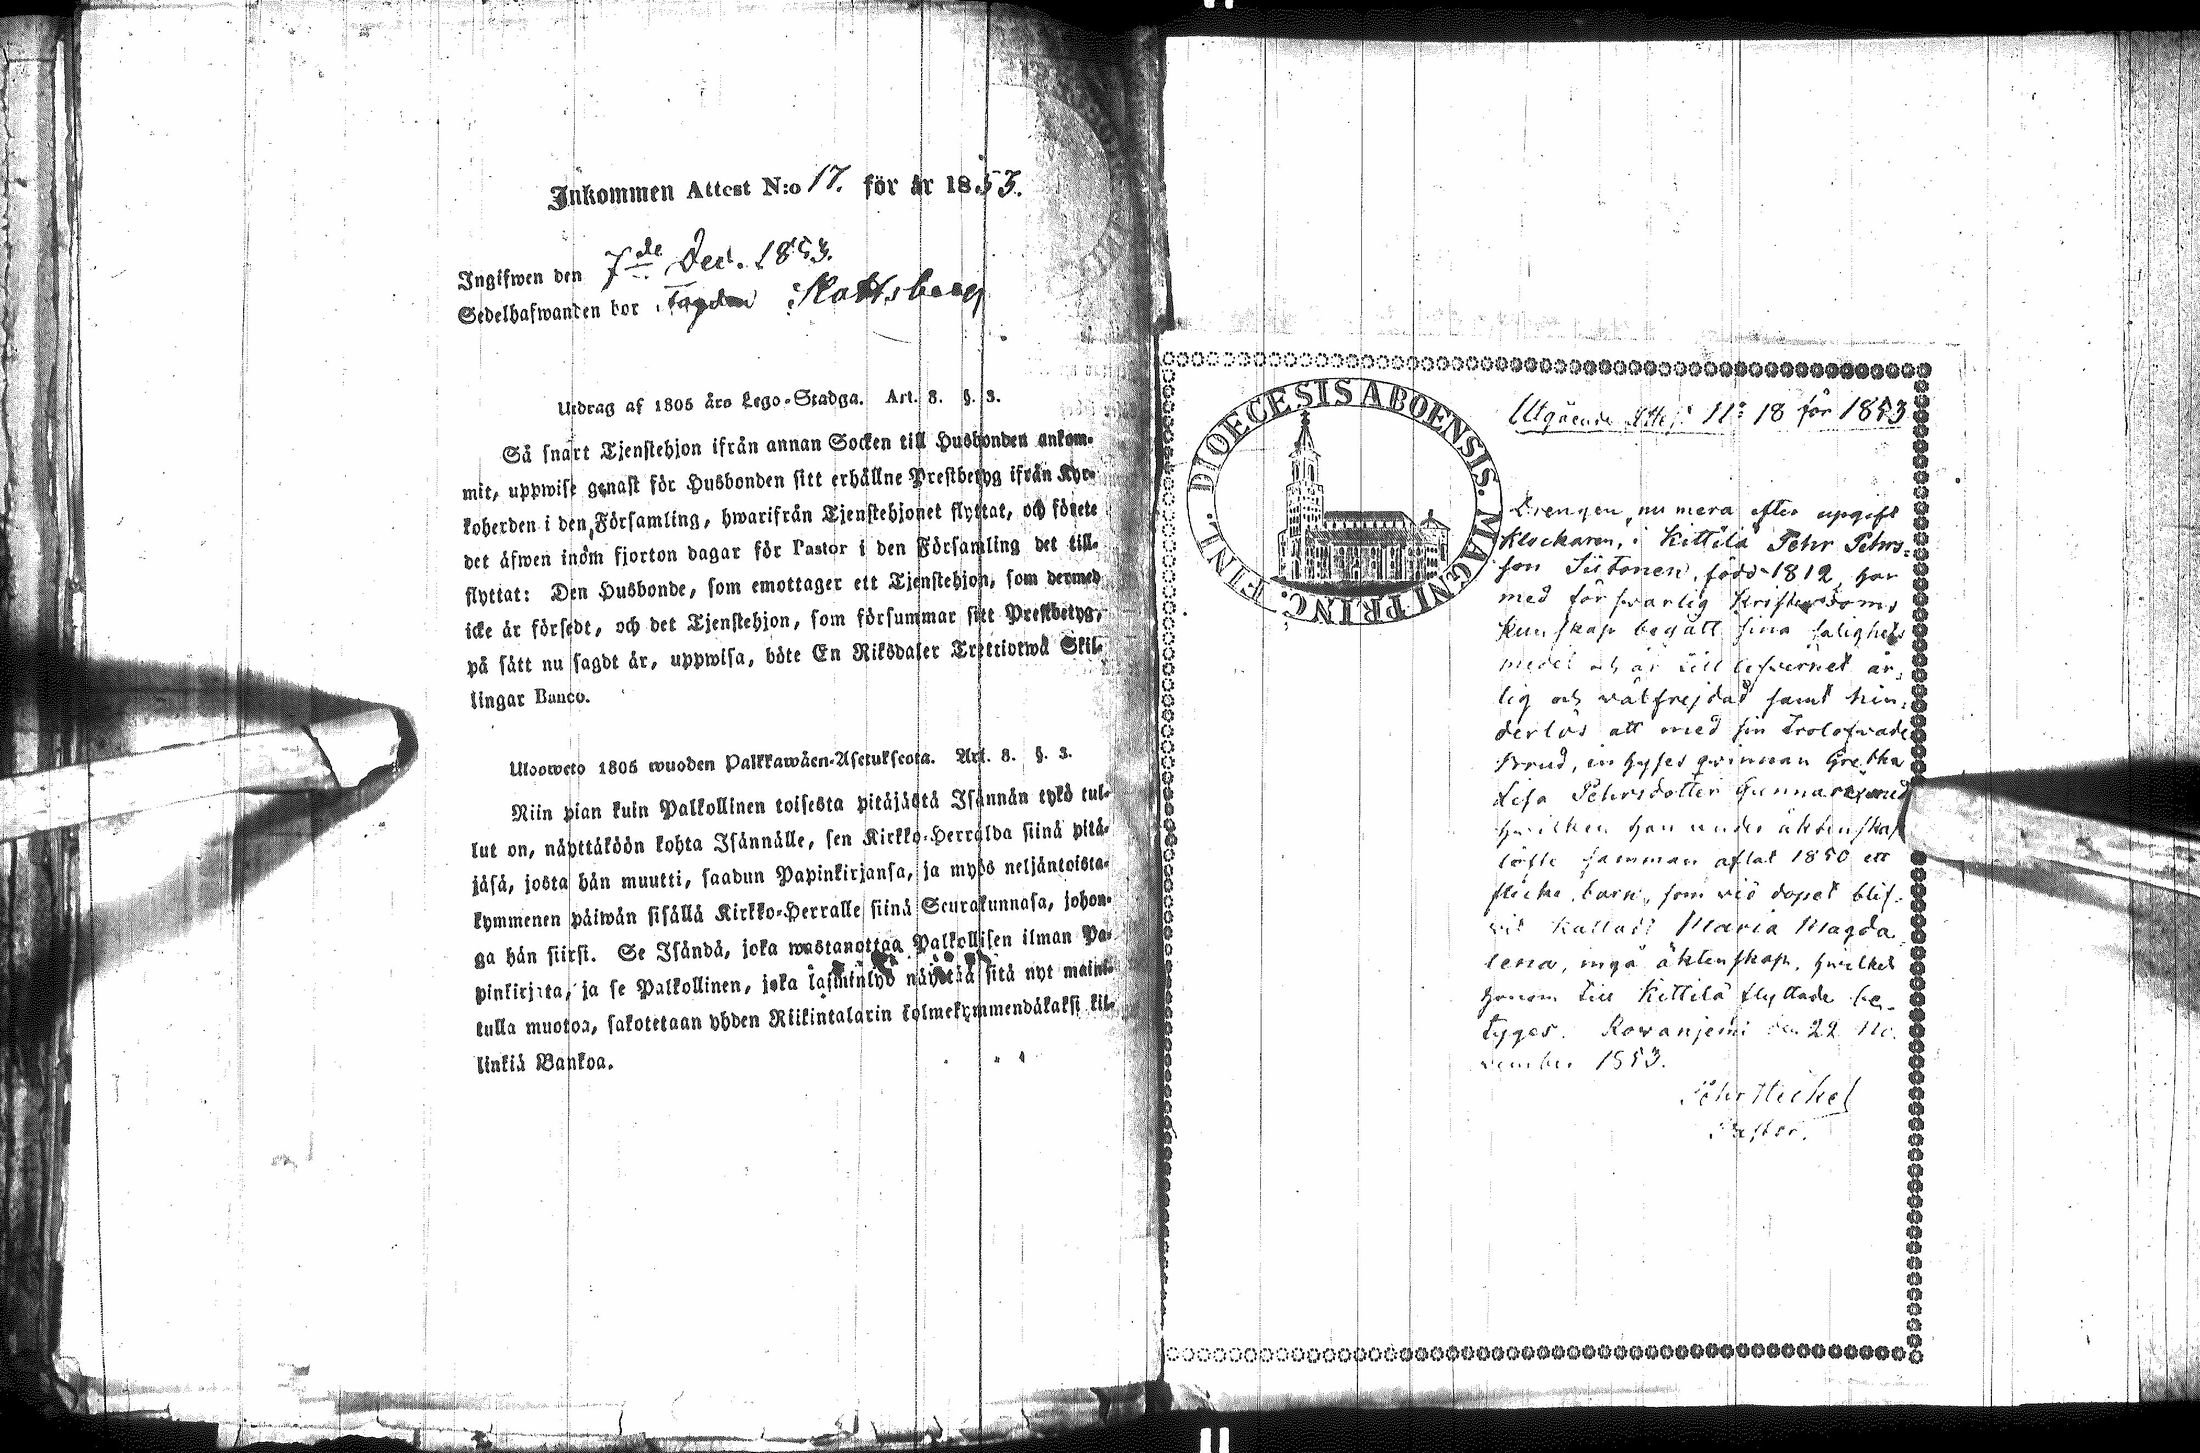 Inkommen Attest N:o 17. för år 1853.
Ingifwen den 7de Dec. 1853.
Sedelhafwanden bor
Utdrag af 1805 års Lego-Stadga. Art. 8. §. 3.
Så snart Tjenstehjon ifrån annan Socken till Husbonden ankom-
mit, uppwise genast för Husbonden sitt erhållne Prestbetyg ifrån Kyr-
koherden i den Församling, hwarifrån Tjenstehjonet flyttat, och förete
det äfwen inom fjorton dagar för Pastor i den Församling det till-
flyttat: Den Husbonde, som emottager ett Tjenstehjon, som dermed
icke är försedt, och det Tjenstehjon, som försummar sitt Prestbetyg,
på sätt nu sagdt är, uppwisa, böte En Riksdaler Trettiotwå Skil-
lingar Banco.
Ulosweto 1805 wuoden Palkkawäen-Asetuksesta. Art. 8. §. 3.
Niin pian kuin Palkollinen toisesta pitäjästä Isännän tykö tul-
lut on, näyttäköön kohta Isännälle, sen Kirkko-Herralda siinä pitä-
jäsä, josta hän muutti, saadun Papinkirjansa, ja myös neljäntoista-
kymmenen päiwän sisällä Kirkko-Herralle siinä Seurakunnasa, johon-
ga hän siirsi. Se Isändä, joka wastanottaa Palkollisen ilman Pa-
pinkirjata, ja se Palkollinen, joka laiminlyö näyttää sitä nyt maini-
tulla muotoa, sakotetaan yhden Riikintalarin kolmekymmendäkaksi kil-
linkiä Bankoa.
DIOECESIS ABOENSIS. MAGNI PRINC. FINL.
Utgående Attest N:o 18 för 1853
Drengen, nu mera efter upgift
klockaren, i Kittilä Pehr Pehrs-
son Siitonen, född 1812, har
med försvarlig Kristendoms
kunskap begått sina salighets
medel och är till lefvernet är-
lig och wälfrejdad samt hin-
derlös att med sin trolofwade
brud, inhyses qwinnan Gretha
Lisa Pehrsdotter Gunnari, med
hwilken han under äktenskaps
löfte samman aflat 1850 ett
flicke barn, som vid dopet blif-
vit kallad Maria Magda
lena, ingå äktenskap, hwilket
honom till Kittilä flyttade be-
tyges. Rovanjemi den 22 No-
vember 1853.
Pehr Heikel
Pastor.